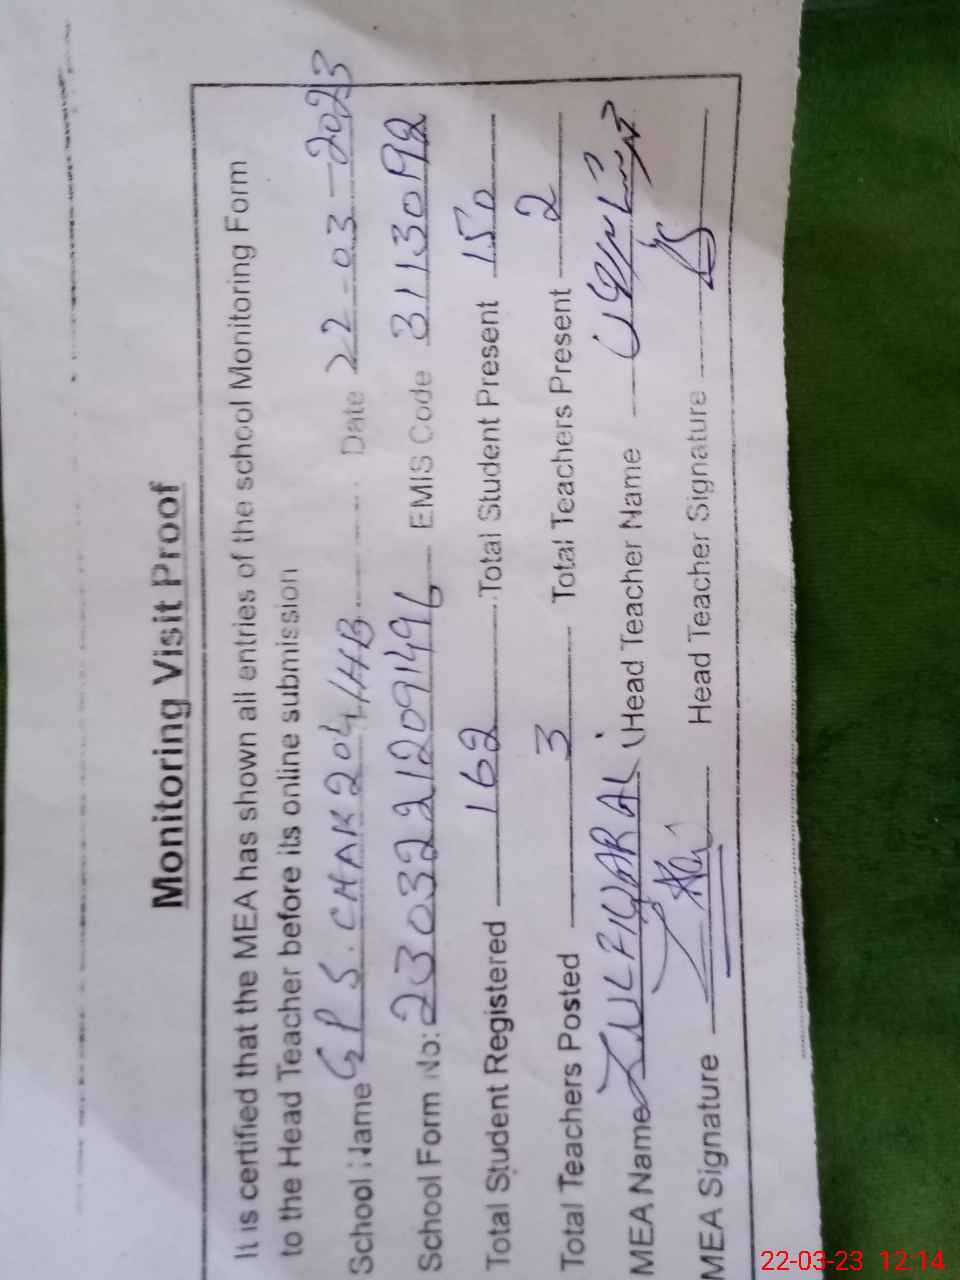 Monitoring Visit Proof
It is certified that the MEA has shown all entries of the school Monitoring Form
to the Head Teacher before its online submission
School Name GPS. CHAK 204/HB Date 22-03-2023
School Form No: 23032212091496 EMIS Code 31130192
Total Student Registered 162 Total Student Present 150
Total Teachers Posted 3 Total Teachers Present 2
MEA Name ZULFIQAR ALI (Head Teacher Name
MEA Signature Head Teacher Signature
22-03-23 12:14